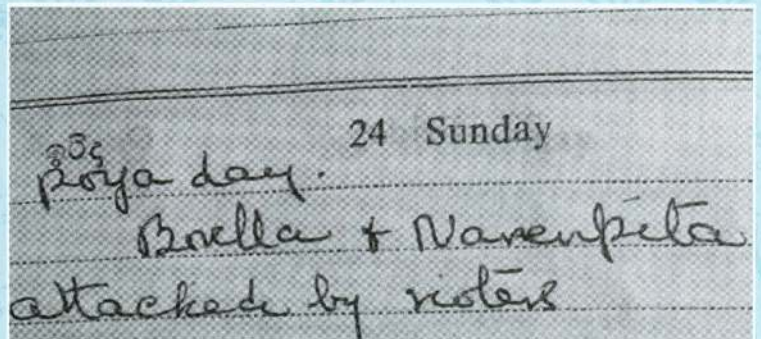 24 Sunday
Poya day.
Borella & Narenpita
attacked by rioters